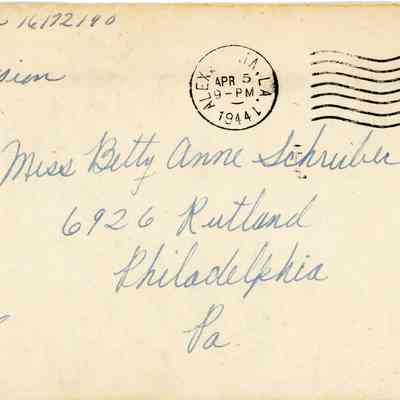 16172190
sion
ALEX IA, LA.
APR 5
9-PM
1944
Miss Betty Anne Schreiber
6926 Rutland
Philadelphia
Pa.